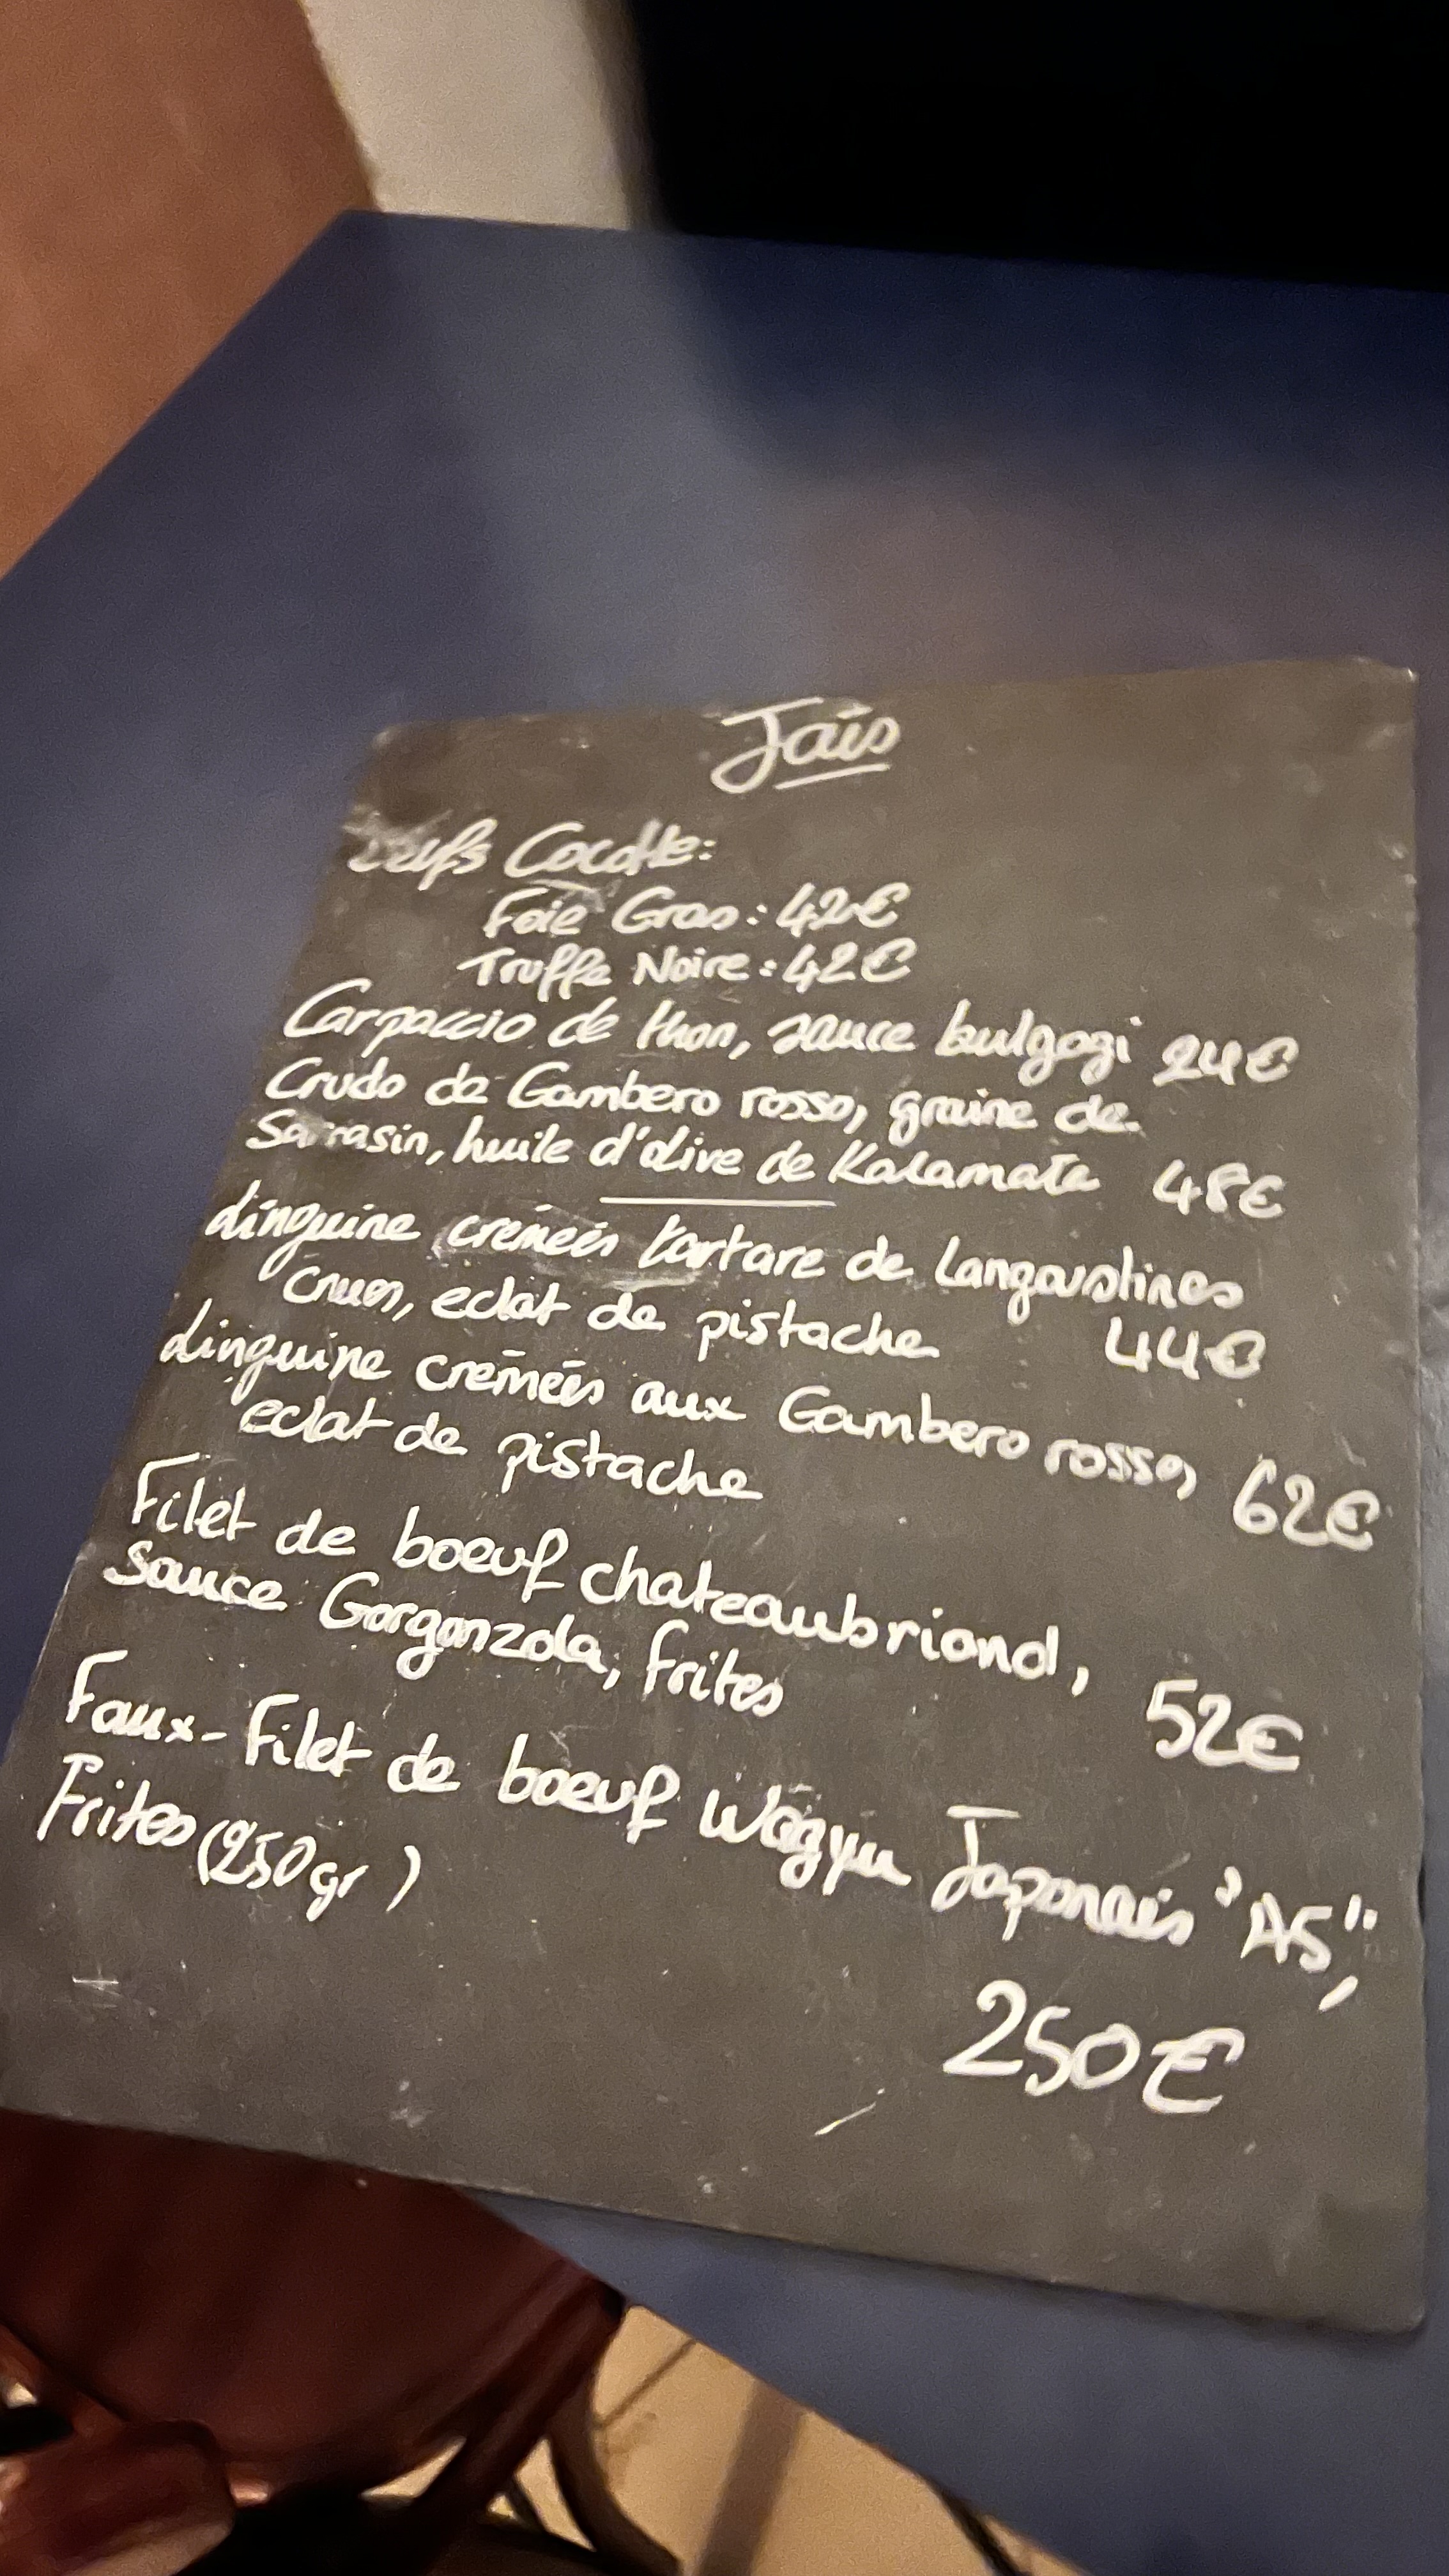 Jaïs
Oeufs Cocotte:
Foie Gras: 42€
Truffe Noire: 42€
Carpaccio de thon, sauce bulgogi 24€
Crudo de Gambero rosso, graine de
Sarrasin, huile d'olive de Kalamata 48€
Linguine crémées tartare de Langoustines
crues, eclat de pistache 44€
Linguine crémées aux Gambero rosso, 62€
eclat de pistache
Filet de boeuf chateaubriand,
sauce Gorgonzola, frites 52€
Faux-Filet de boeuf Wagyu Japonais "A5",
Frites (250gr)
250€